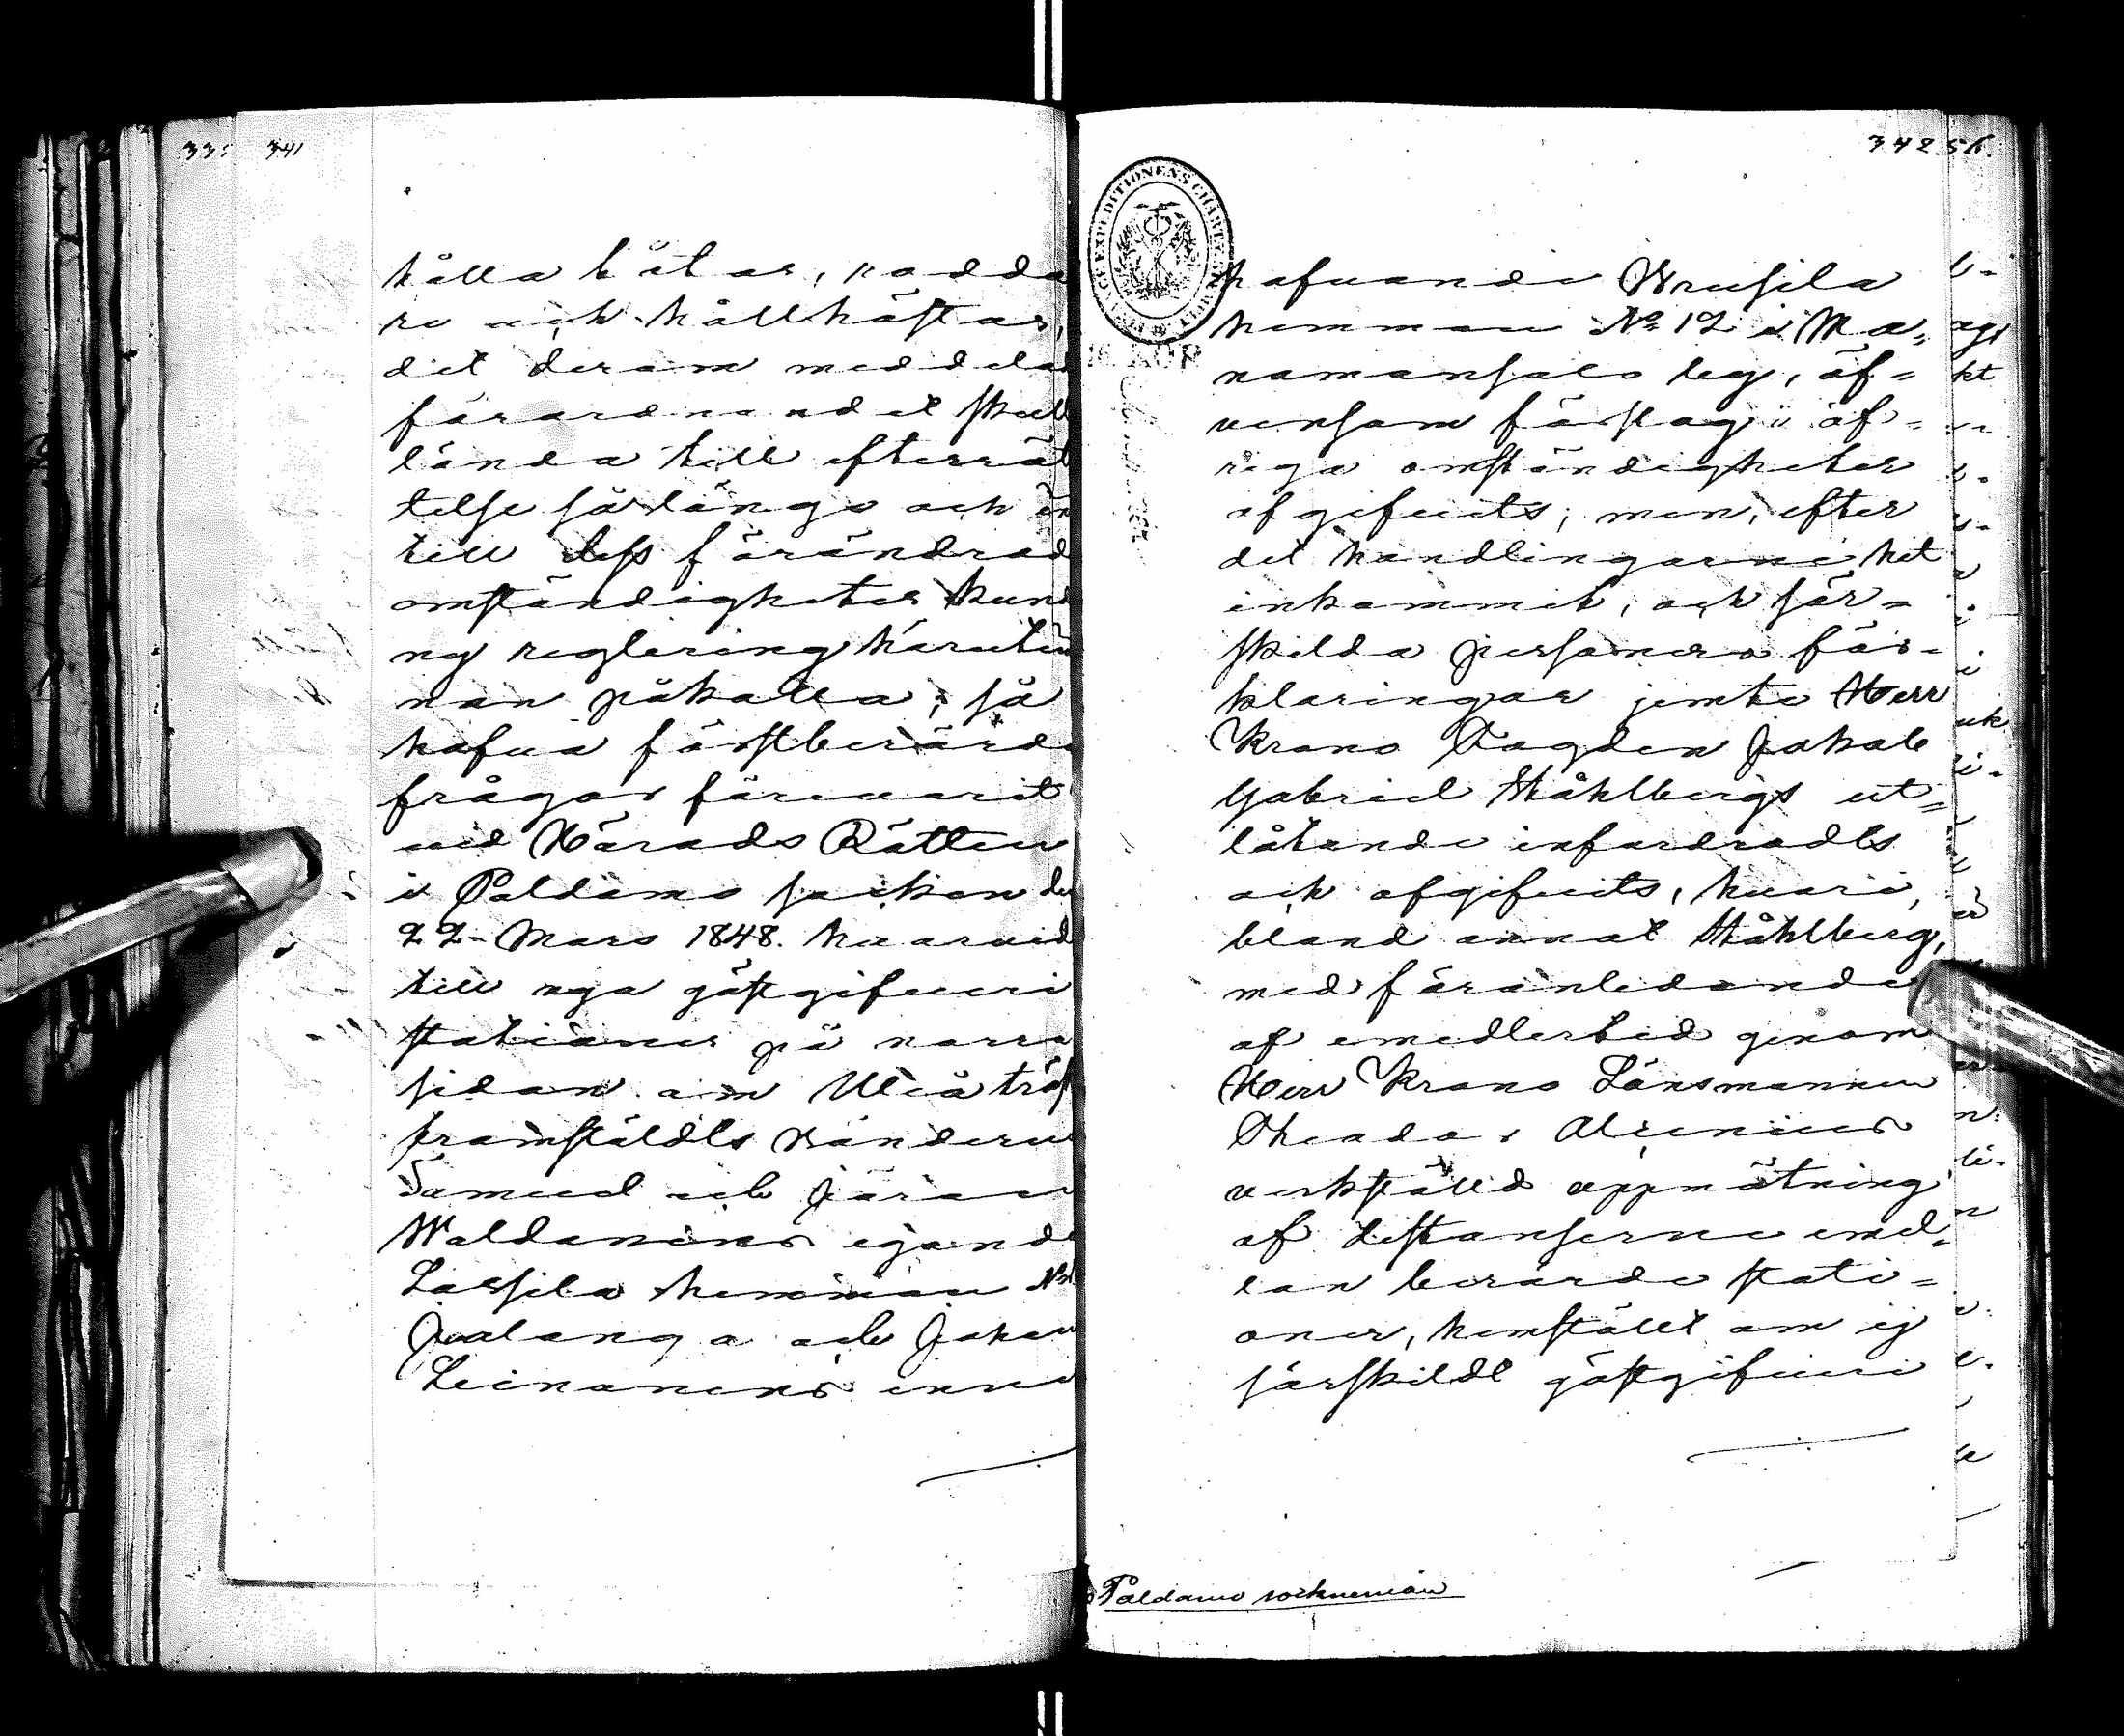 341
hålla båtar, rodda
re och hållhästar,
det derom meddela
förordnandet skull
lända till efterrät
telse sålänge och in
till dess förändrad
omständigheter kun
ny reglering härutin
nan påkalla; så
hafva förstberörde
frågor förevarit
vid Härads Rätten
i Paldamo socken de
22 Mars 1848. hvarvid
till nya gästgifveri
stationer på norra
sidan om Uleå träsk
framstäldts bönderne
Samuel och Göran
Waldanens egande
Lassila hemman No
Jvalanga och Johan
Leinanens inne
342.
hafvande Wrusila
hemman No 12 i Ma,
namansalo by, äf=
vensom förslag i öf=
riga omständigheter
afgifvits; men, efter
det handlingarne hit
inkommit, och sär=
skilda personers för=
klaringar jemte Herr
Krono Fogden Jakob
Gabriel Ståhlbergs ut=
låtande infordradts
och afgifvits, hvari,
bland annat Ståhlberg,
med föranledande
af emedlertid genom
Herr Krono Länsmannen
Theodor Alcenius
verkställd uppmätning
af distanserne emel,
lan berörde stati=
oner, hemställt om ej
särskildt gästgifveri
Paldamo